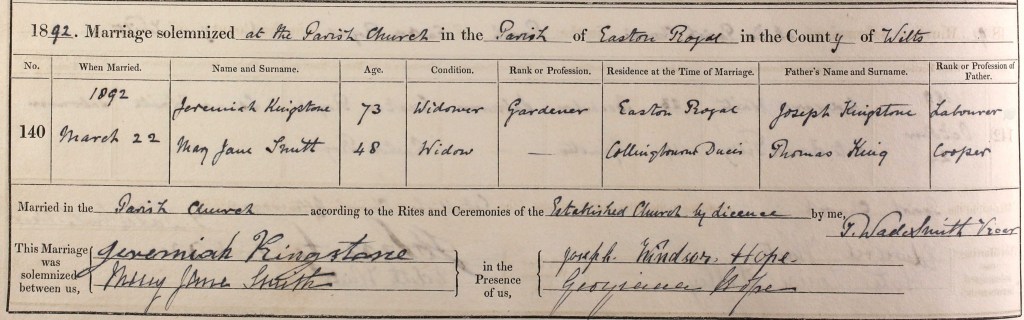 1892. Marriage solemnized at the Parish Church in the Parish of Easton Royal in the County of Wilts
No. When Married. Name and Surname. Age. Condition. Rank or Profession. Residence at the Time of Marriage. Father's Name and Surname. Rank or Profession of Father.
140 1892 March 22 Jeremiah Kingstone 73 Widower Gardener Easton Royal Joseph Kingstone Labourer
Mary Jane Smith 48 Widow — Collingbourne Ducis Thomas King Cooper
Married in the Parish Church according to the Rites and Ceremonies of the Established Church by Licence by me,
T. Wade Smith Vicar
This Marriage was solemnized between us, Jeremiah Kingstone in the Presence of us, Joseph Windsor Hope
Mary Jane Smith Georgiana Hope